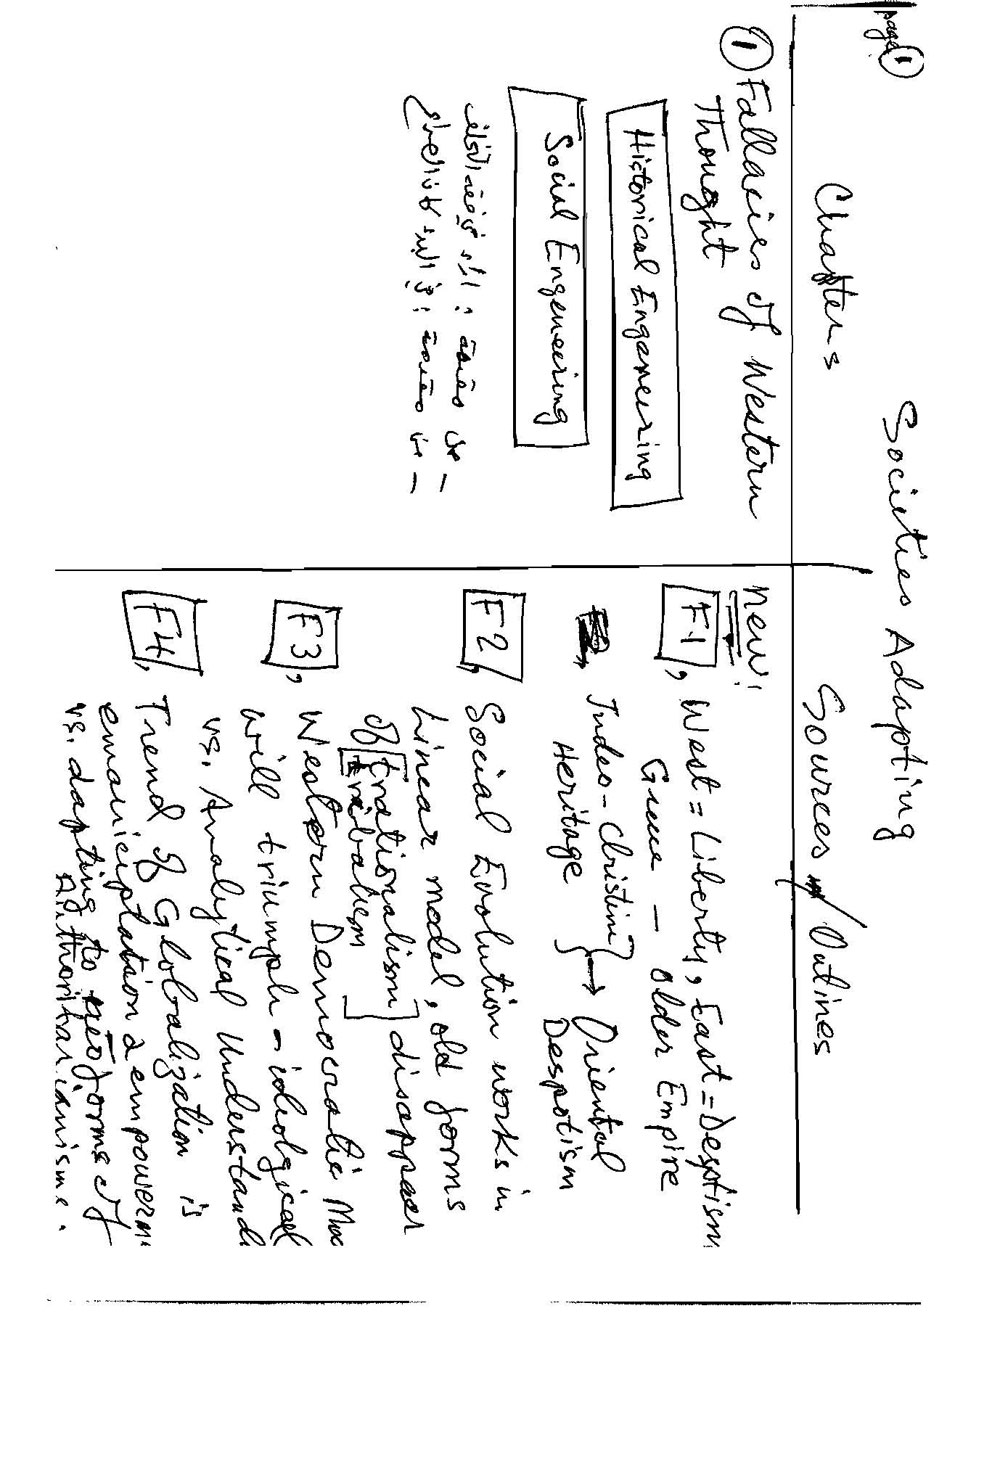 Page 1
Societies Adapting
Chapters
Sources / Outlines
① Fallacies of Western
Thought
Historical Enganeering
Social Engeneering
new:
F1, West = Liberty, East = Desptism
Greece — older Empire
Judeo-Christian
Heritage → Oriental
Despotism
F2, Social Evolution works in
Linear model, old forms
of [nationalism] disappear
tribalism
F3, Western Democratic
will triumph - idiological
vs. Analytical Understand
F4, Trend of Globalization is
emanicipatation & empowerm
vs. dapting to neo forms of
Authoritarianisme.